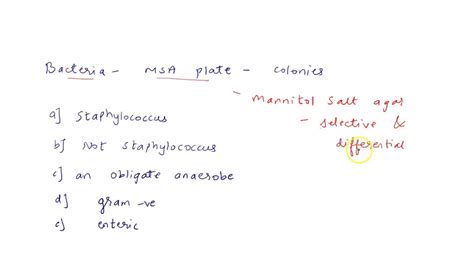 Bacteria - MSA plate - colonies
- Mannitol salt agar
- selective &
differential
a] Staphylococcus
b] Not Staphylococcus
c] an obligate anaerobe
d] gram -ve
e] enteric